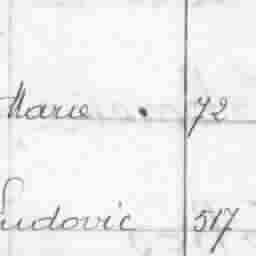 Marie . 72
Ludovic 517